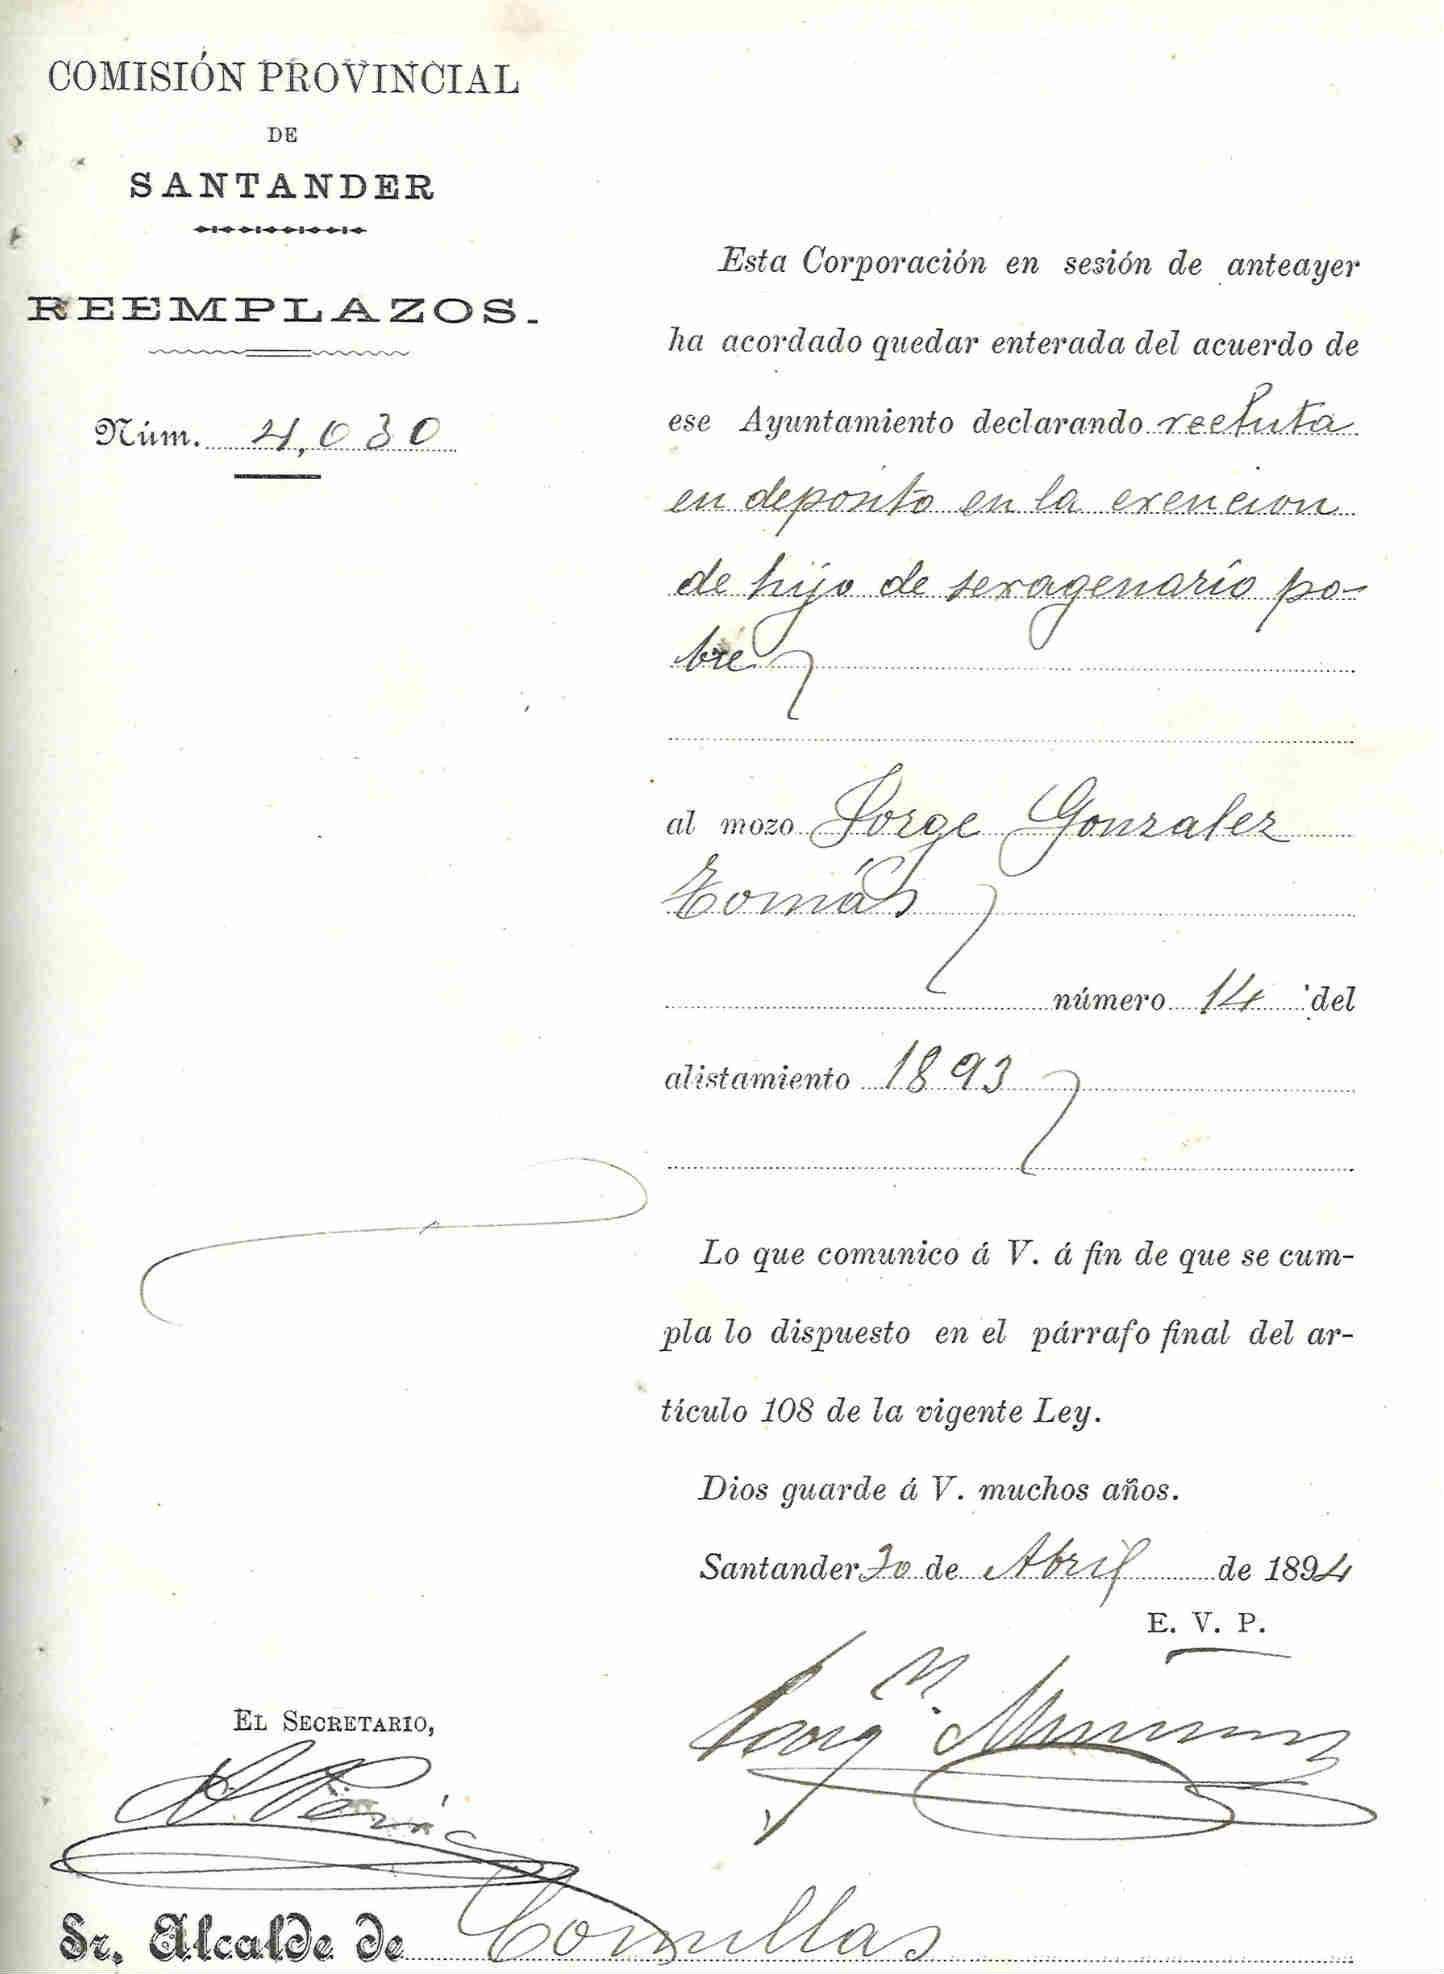 COMISIÓN PROVINCIAL
DE
SANTANDER
REEMPLAZOS.
Núm. 4,030
Esta Corporación en sesión de anteayer
ha acordado quedar enterada del acuerdo de
ese Ayuntamiento declarando recluta
en deposito en la exencion
de hijo de sexagenario po-
bre
al mozo Jorge Gonzalez
Tomás
número 14 del
alistamiento 1893
Lo que comunico á V. á fin de que se cum-
pla lo dispuesto en el párrafo final del ar-
tículo 108 de la vigente Ley.
Dios guarde á V. muchos años.
Santander 30 de Abril de 1894
E. V. P.
EL SECRETARIO,
Sr. Alcalde de Comillas